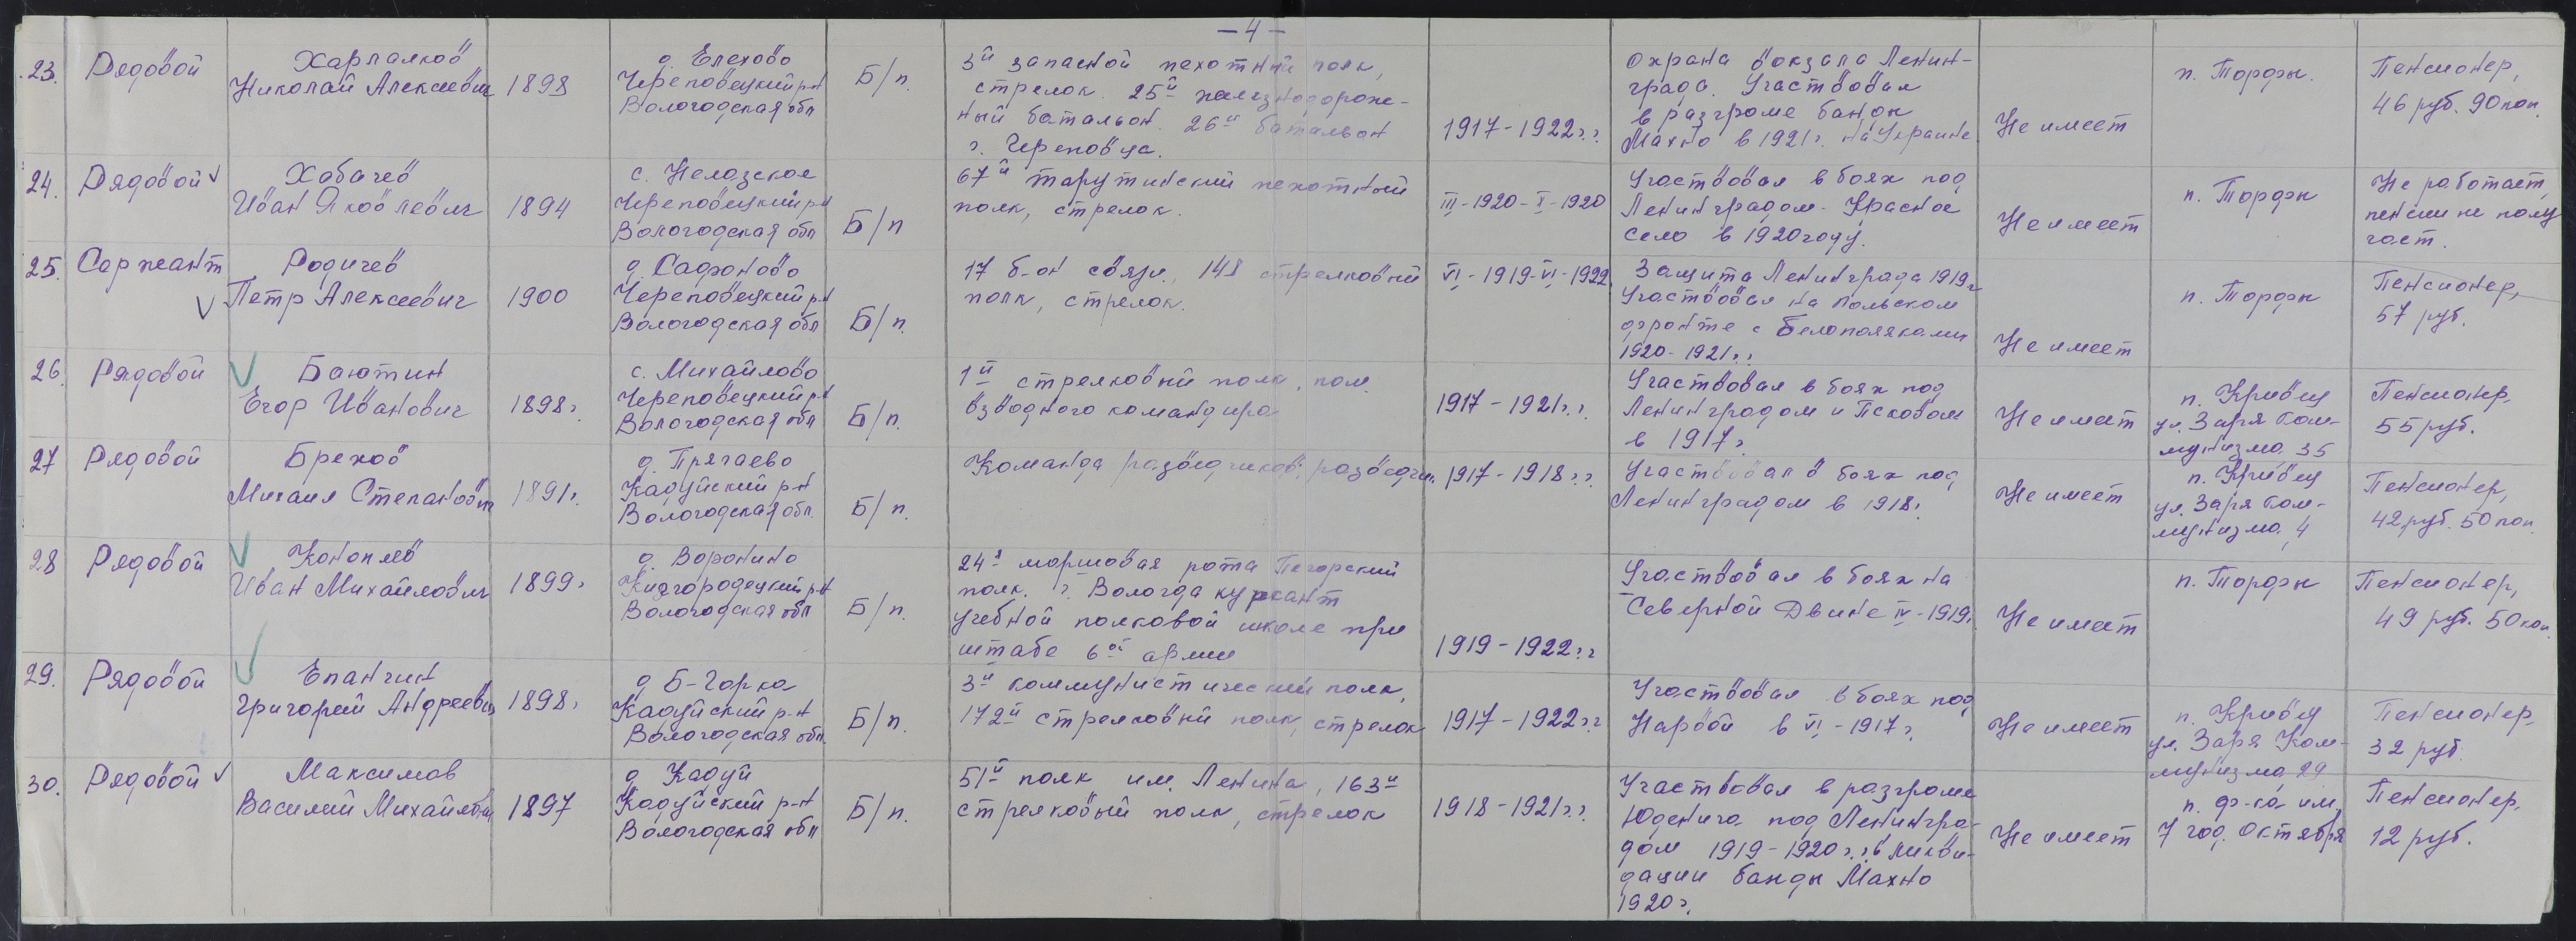 – 4 –
23. Рядовой
Харпалков
Николай Алексеевич
1898
д. Елехово
Череповецкий р-н
Вологодская обл
Б/п.
3й запасной пехотный полк,
стрелок. 25й железнодорож-
ный батальон. 26й батальон
г. Череповца.
1917-1922г.г.
Охрана вокзала Ленин-
града. Участвовал
в разгроме банды
Махно в 1921г. на Украине
Не имеет
п. Торфы.
Пенсионер,
46 руб. 90 коп.
24. Рядовой
Хабачев
Иван Яковлевич
1894
с. Нелазское
Череповецкий р-н
Вологодская обл
Б/п
67й тарутинский пехотный
полк, стрелок.
III-1920-X-1920
Участвовал в боях под
Ленинградом - Красное
село в 1920 году.
Не имеет
п. Торфы
Не работает,
пенсии не полу
чает.
25. Сержант
Родичев
Петр Алексеевич
1900
д. Сафоново
Череповецкий р-н
Вологодская обл
Б/п.
17 б-он связи, 148 стрелковый
полк, стрелок.
VI-1919-VI-1922
Защита Ленинграда 1919г
Участвовал на Польском
фронте с белополяками
1920-1921г.г
Не имеет
п. Торфы
Пенсионер,
57 руб.
26. Рядовой
Баютин
Егор Иванович
1898г.
с. Михайлово
Череповецкий р-н
Вологодская обл
Б/п.
1й стрелковый полк, пом.
взводного командира
1917-1921г.г.
Участвовал в боях под
Ленинградом и Псковом
в 1917г.
Не имеет
п. Кривец
ул. Заря Ком-
мунизма, 35
Пенсионер,
55 руб.
27 Рядовой
Брехов
Михаил Степанович
1891г.
д. Прягаево
Кадуйский р-н
Вологодская обл.
Б/п.
Команда разведчиков, разведчик
1917-1918г.г.
Участвовал в боях под
Ленинградом в 1918г.
Не имеет
п. Кривец
ул. Заря Ком-
мунизма, 4
Пенсионер,
42 руб. 50 коп
28 Рядовой
Коноплев
Иван Михайлович
1899г
д. Воронино
Кичгородецкий р-н
Вологодская обл
Б/п.
24я маршовая рота Печорский
полк. г. Вологда курсант
учебной полковой школе при
штабе 6ой армии
1919-1922г.г
Участвовал в боях на
Северной Двине IV-1919г.
Не имеет
п. Торфы
Пенсионер,
49 руб. 50 коп.
29. Рядовой
Епанчин
Григорий Андреевич
1898г
д Б-Горка
Кадуйский р-н
Вологодская обл.
Б/п.
3й коммунистический полк,
172й стрелковый полк, стрелок
1917-1922г.г
Участвовал в боях под
Нарвой в VI-1917г.
Не имеет
п. Кривец
ул. Заря Ком-
мунизма, 29
Пенсионер,
32 руб.
30. Рядовой
Максимов
Василий Михайлович
1897
д Кадуй
Кадуйский р-н
Вологодская обл
Б/п.
51й полк им. Ленина, 163й
стрелковый полк, стрелок
1918-1921г.г.
Участвовал в разгроме
Юденича под Ленингра-
дом 1919-1920г.г. в ликви-
дации банды Махно
1920г.
Не имеет
п. ф-ка им.
7 год. Октября
Пенсионер,
12 руб.